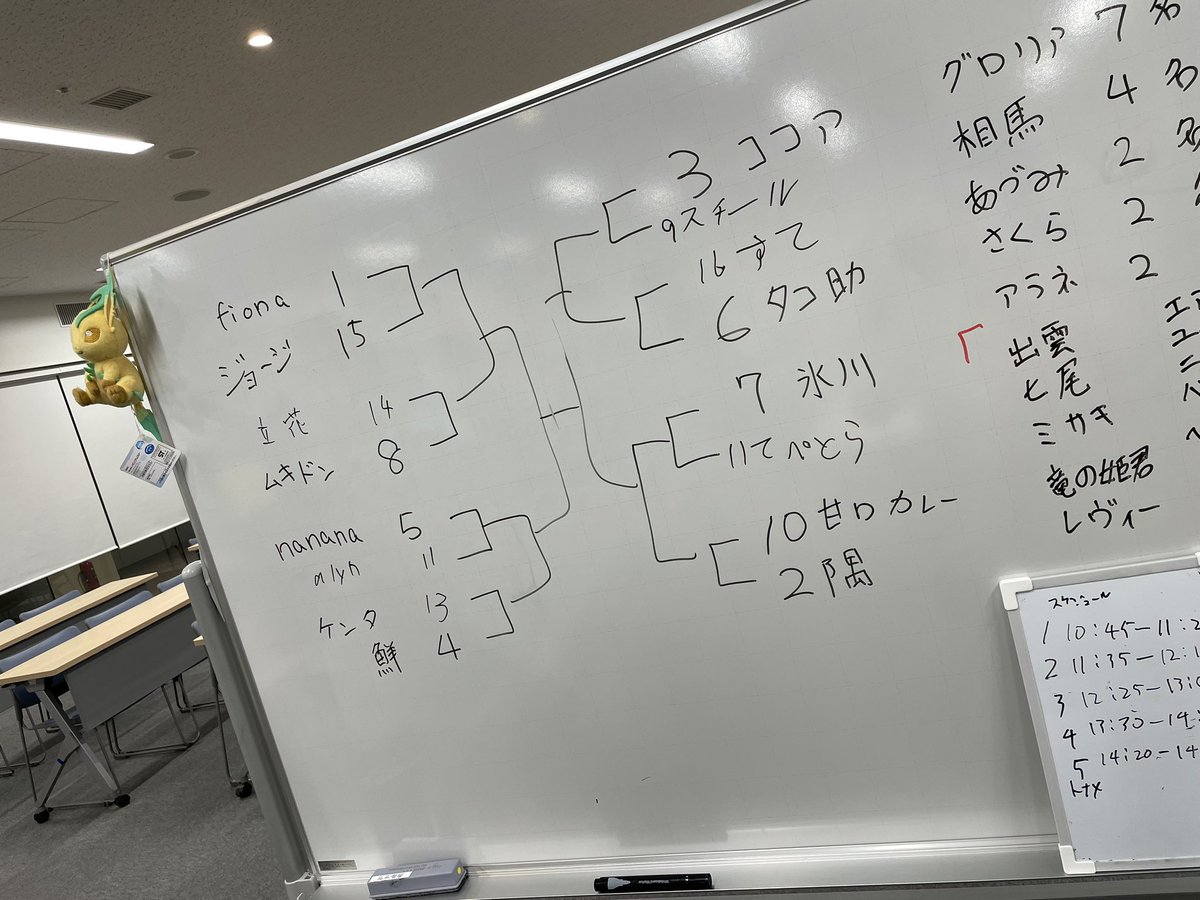 fiona 1
ジョージ 15
立花 14
ムキドン 8
nanana 5
alyn 11
ケンタ 13
鮮 4
3 ココア
9スチール
16 すて
6 タコ助
7 氷川
11てぺとら
10 甘口カレー
2 隅
グロリア 7 名
相馬 4 名
あづみ 2 名
さくら 2
アラネ 2
出雲 エ
七尾 ユ
ミカキ ニ
竜の姫君
レヴィー
スケジュール
1 10:45-11:2
2 11:35-12:1
3 12:25-13:0
4 13:30-14:
5 14:20-14
トナメ